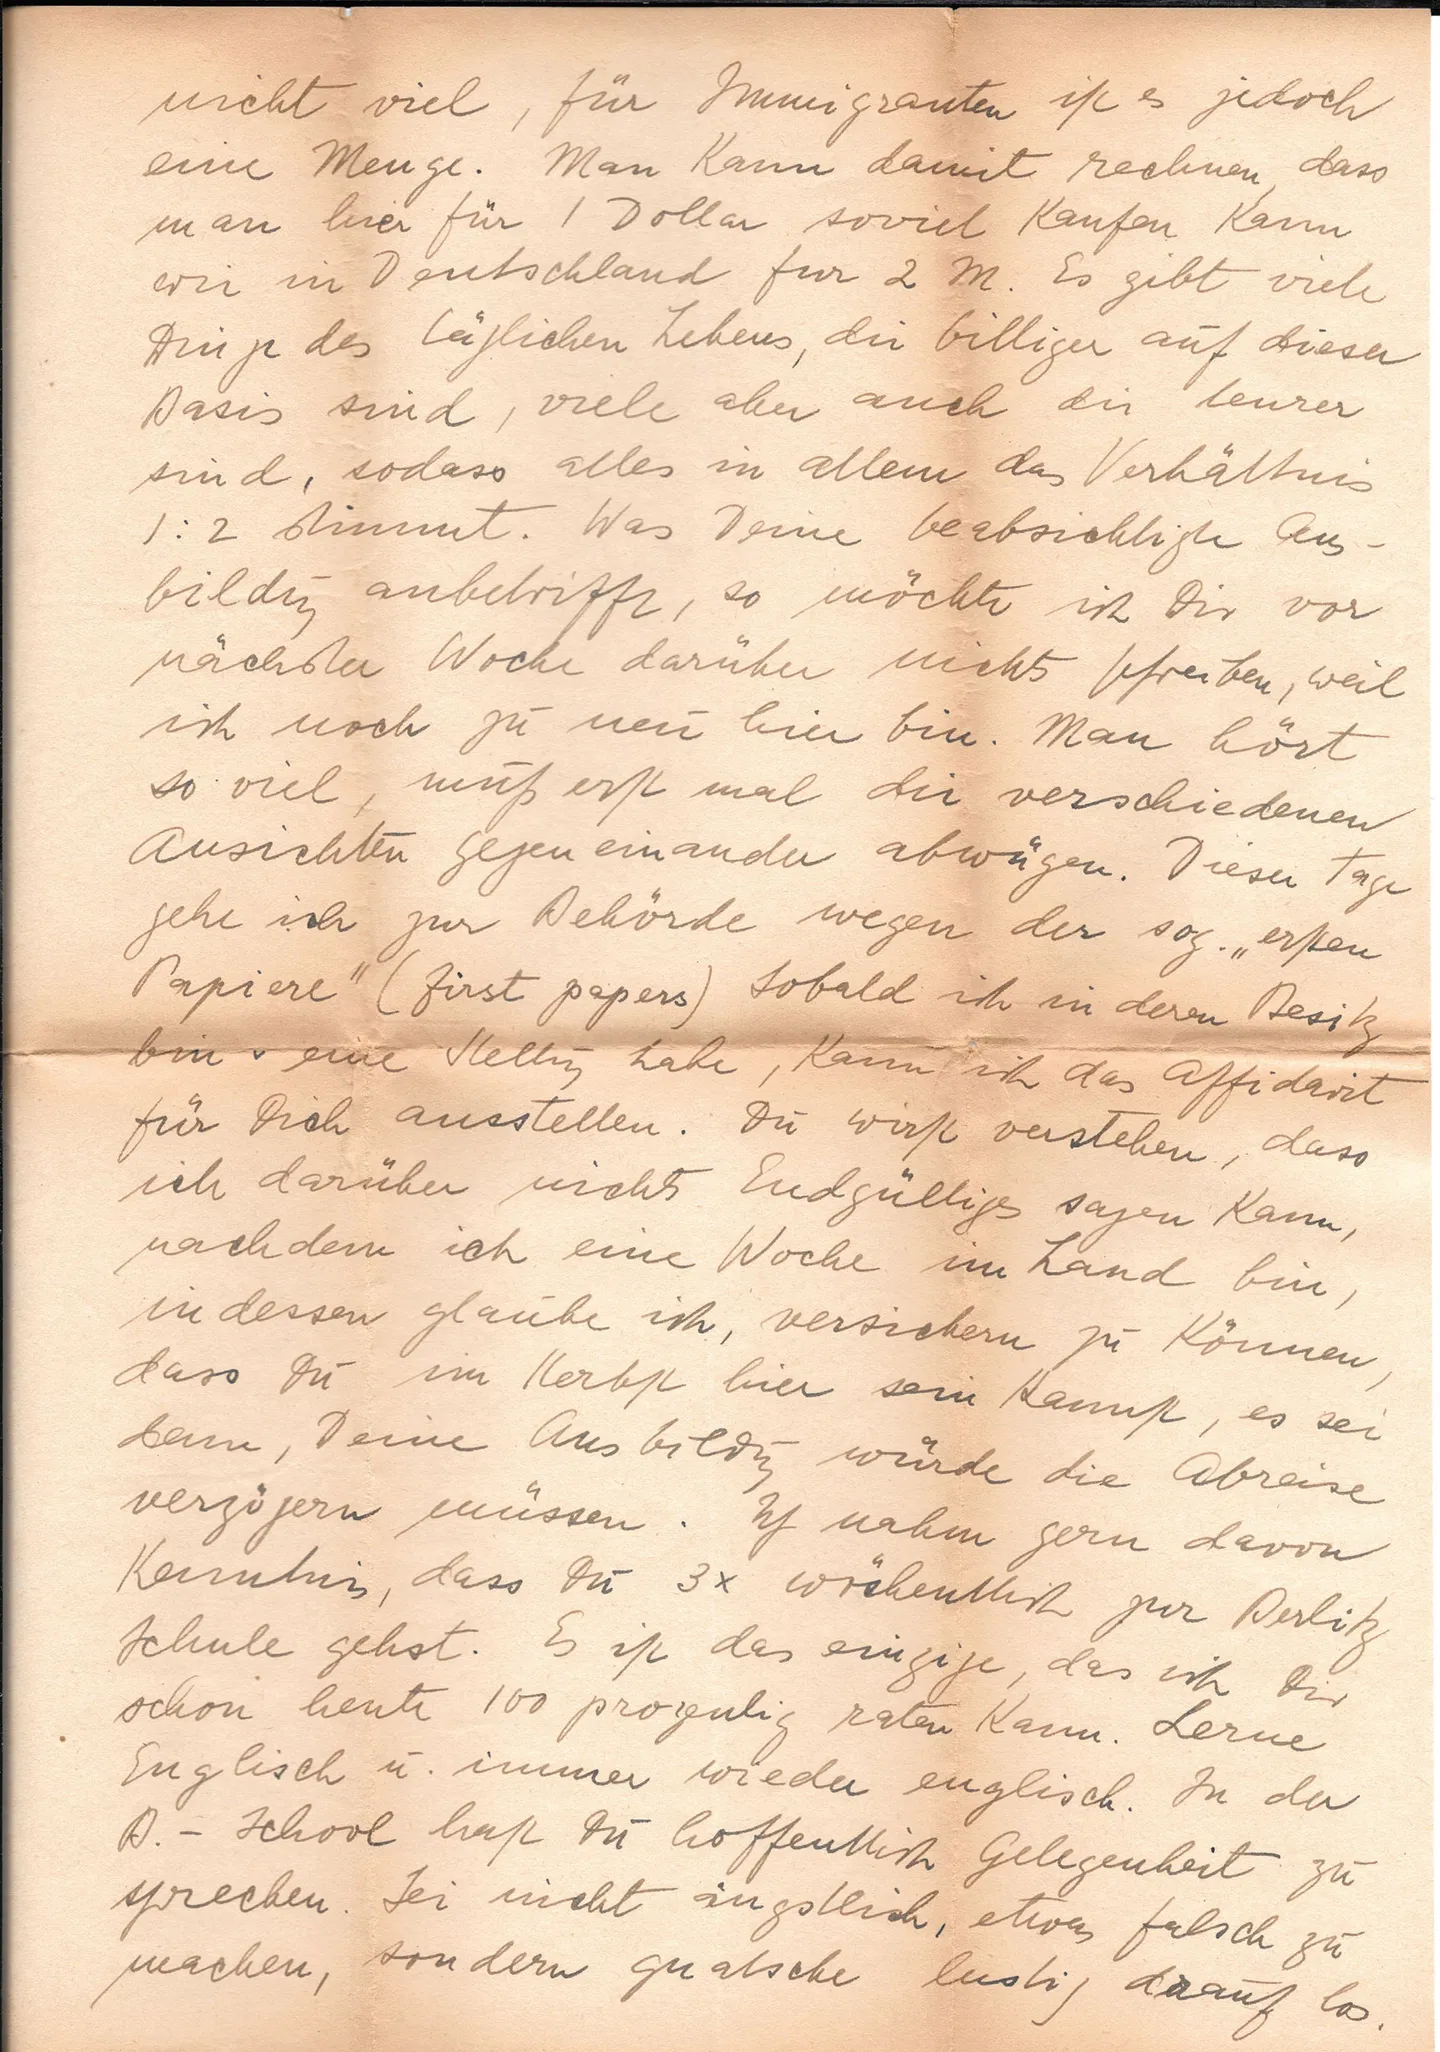 nicht viel, für Immigranten ist es jedoch
eine Menge. Man kann damit rechnen, dass
man hier für 1 Dollar soviel kaufen kann
wie in Deutschland fur 2 M. Es gibt viele
Dinge des täglichen Lebens, die billiger auf dieser
Basis sind, viele aber auch die teurer
sind, sodass alles in allem das Verhältnis
1:2 stimmt. Was Deine beabsichtigte Aus-
bildg anbetrifft, so möchte ich Dir vor
nächster Woche darüber nichts schreiben, weil
ich noch zu neu hier bin. Man hört
so viel, muß erst mal die verschiedenen
Ansichten gegeneinander abwägen. Dieser Tage
gehe ich zur Behörde wegen der sog. „ersten
Papiere" (first papers) Sobald ich in deren Besitz
bin u eine Stellg habe, kann ich das Affidavit
für Dich ausstellen. Du wirst verstehen, dass
ich darüber nichts Endgültiges sagen kann,
nachdem ich eine Woche im Land bin,
indessen glaube ich, versichern zu können,
dass Du im Herbst hier sein kannst, es sei
denn, Deine Ausbildg würde die Abreise
verzögern müssen. Ich nahm gern davon
Kenntnis, dass Du 3x wöchentlich zur Berlitz
Schule gehst. Es ist das einzige, das ich Dir
schon heute 100 prozentig raten kann. Lerne
Englisch u. immer wieder englisch. In der
B.- School hast Du hoffentlich Gelegenheit zu
sprechen. Sei nicht ängstlich, etwas falsch zu
machen, sondern quatsche lustig drauf los.